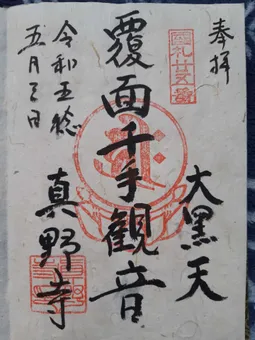 奉拝
霊札廿五番
大黒天
覆面千手観音
令和五稔
五月三日
真野寺